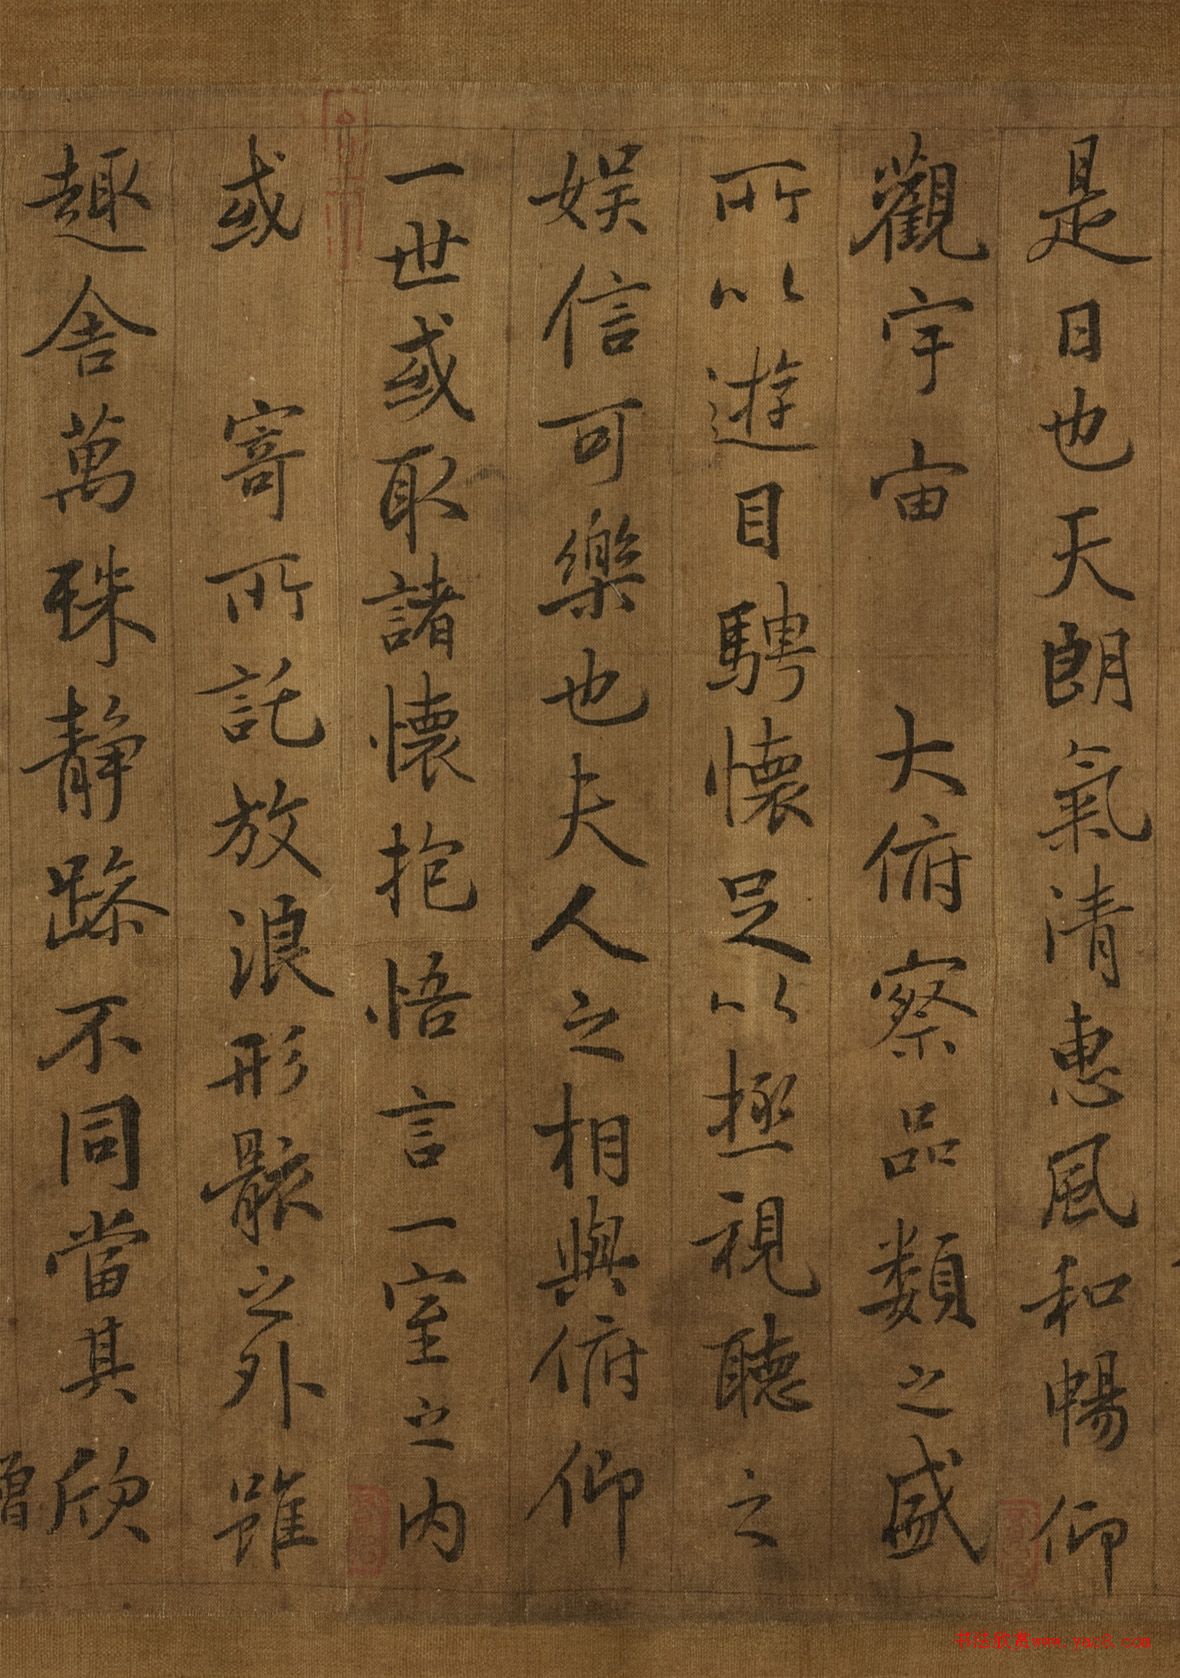 是日也天朗氣清惠風和暢仰
觀宇宙 大俯察品類之盛
所以遊目騁懷足以極視聽之
娛信可樂也夫人之相與俯仰
一世或取諸懷抱悟言一室之內
或 寄所託放浪形骸之外雖
趣舍萬殊靜躁不同當其欣
僧
书法欣赏www.yac8.com